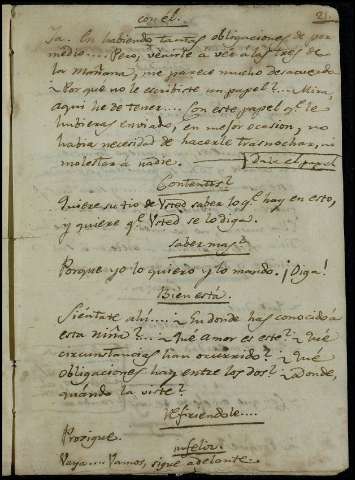 con él.
21.
Ya. En habiendo tantas obligaciones de por
medio.... Pero, venirte à ver à las tres de
la mañana, me parece mucho desacuerdo.
¿Por que no le escribiste un papel?... Mira,
aqui he de tener.... Con este papel q.e le
hubieras enviado, en mejor ocasion, no
habia necesidad de hacerle trasnochar, ni
molestar à nadie. Dale el papel
Contentos?
Quiere su tio de Usted saber lo q.e hay en esto,
y quiere q.e Usted se lo diga.
saber mas?
Porque yo lo quiero y lo mando. ¡Diga!
Bien està.
Siéntate ahí.... ¿En donde has conocido à
esta niña?... ¿Que amor es este? ¿Qué
circunstancias han ocurrido? ¿Qué
obligaciones hay entre los dos? ¿Donde,
quándo la viste?
refiriendole....
Prosigue.
infeliz.
Vaya.... Vamos, sigue adelante.